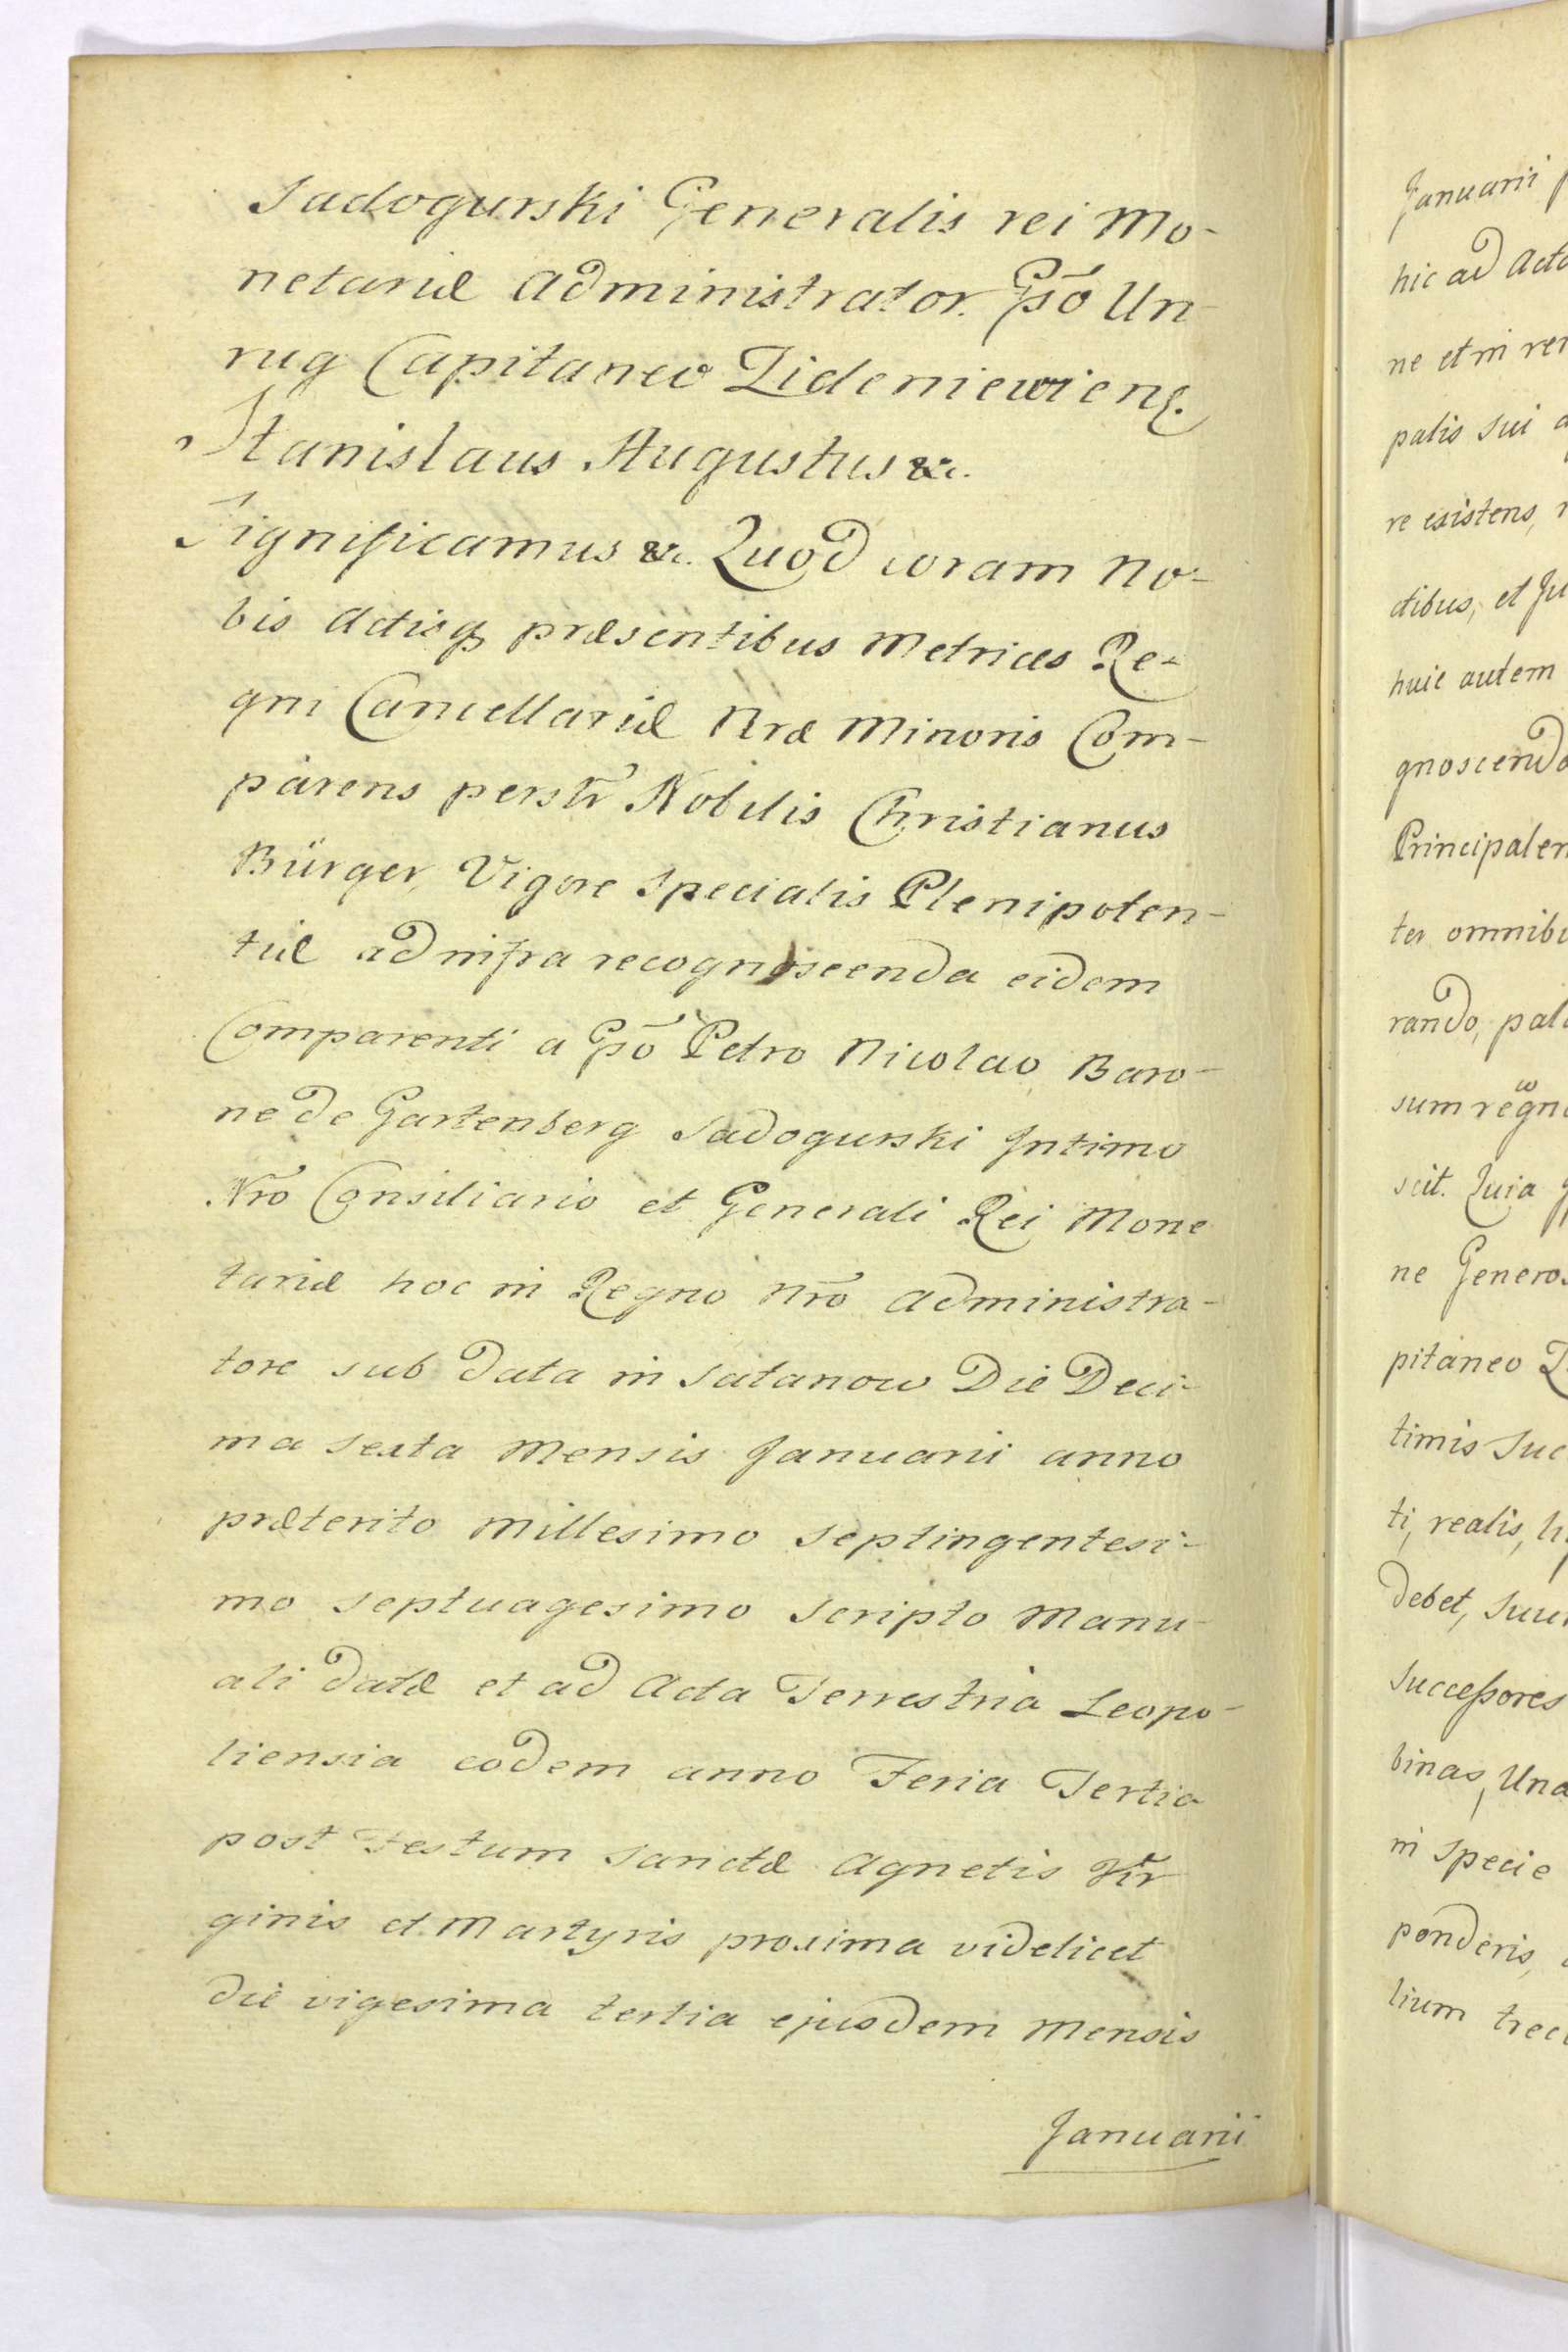 Sadogurski Generalis rei Mo-
netariæ Administrator. Gsō Un
rug Capitaneo Zideniewieng.
Stanislaus Augustus &c.
Significamus &c. Quod coram No-
bis Actisq præsentibus Metrices Re-
gni Cancellariæ Nræ Minoris Com-
parens persltr Nobilis Christianus
Bürger, Vigore specialis Plenipoten-
tiæ ad infra recognoscenda eidem
Comparenti a Gsō Petro Nicolao Baro-
ne De Gartenberg Sadogurski Intimo
Nrō Consiliario et Generali Rei Mone
tariæ hoc in Regno Nrō Administra-
tore sub Data in Satanow Die Deci-
ma sexta Mensis Januarii anno
præterito Millesimo Septingentesi-
mo septuagesimo Scripto Manu-
ali Datæ et ad Acta Terrestria Leopo-
liensia eodem anno Feria Tertia
post Festum Sanctæ Agnetis Vir
ginis et Martyris proxima videlicet
Die vigesima tertia ejusdem Mensis
Januarii
Januarii
hic ad Acta
ne et in rem
palis sui
re existens,
ctibus, et Ju
huic autem
gnoscendo
Principalem
ter omnibu
rando, pala
sum regn
scit. Quia
ne Genero
pitaneo Z
timis Suc
ti, realis,
Debet, Suu
Successores
binas, Una
in specie
ponderis,
lium trec